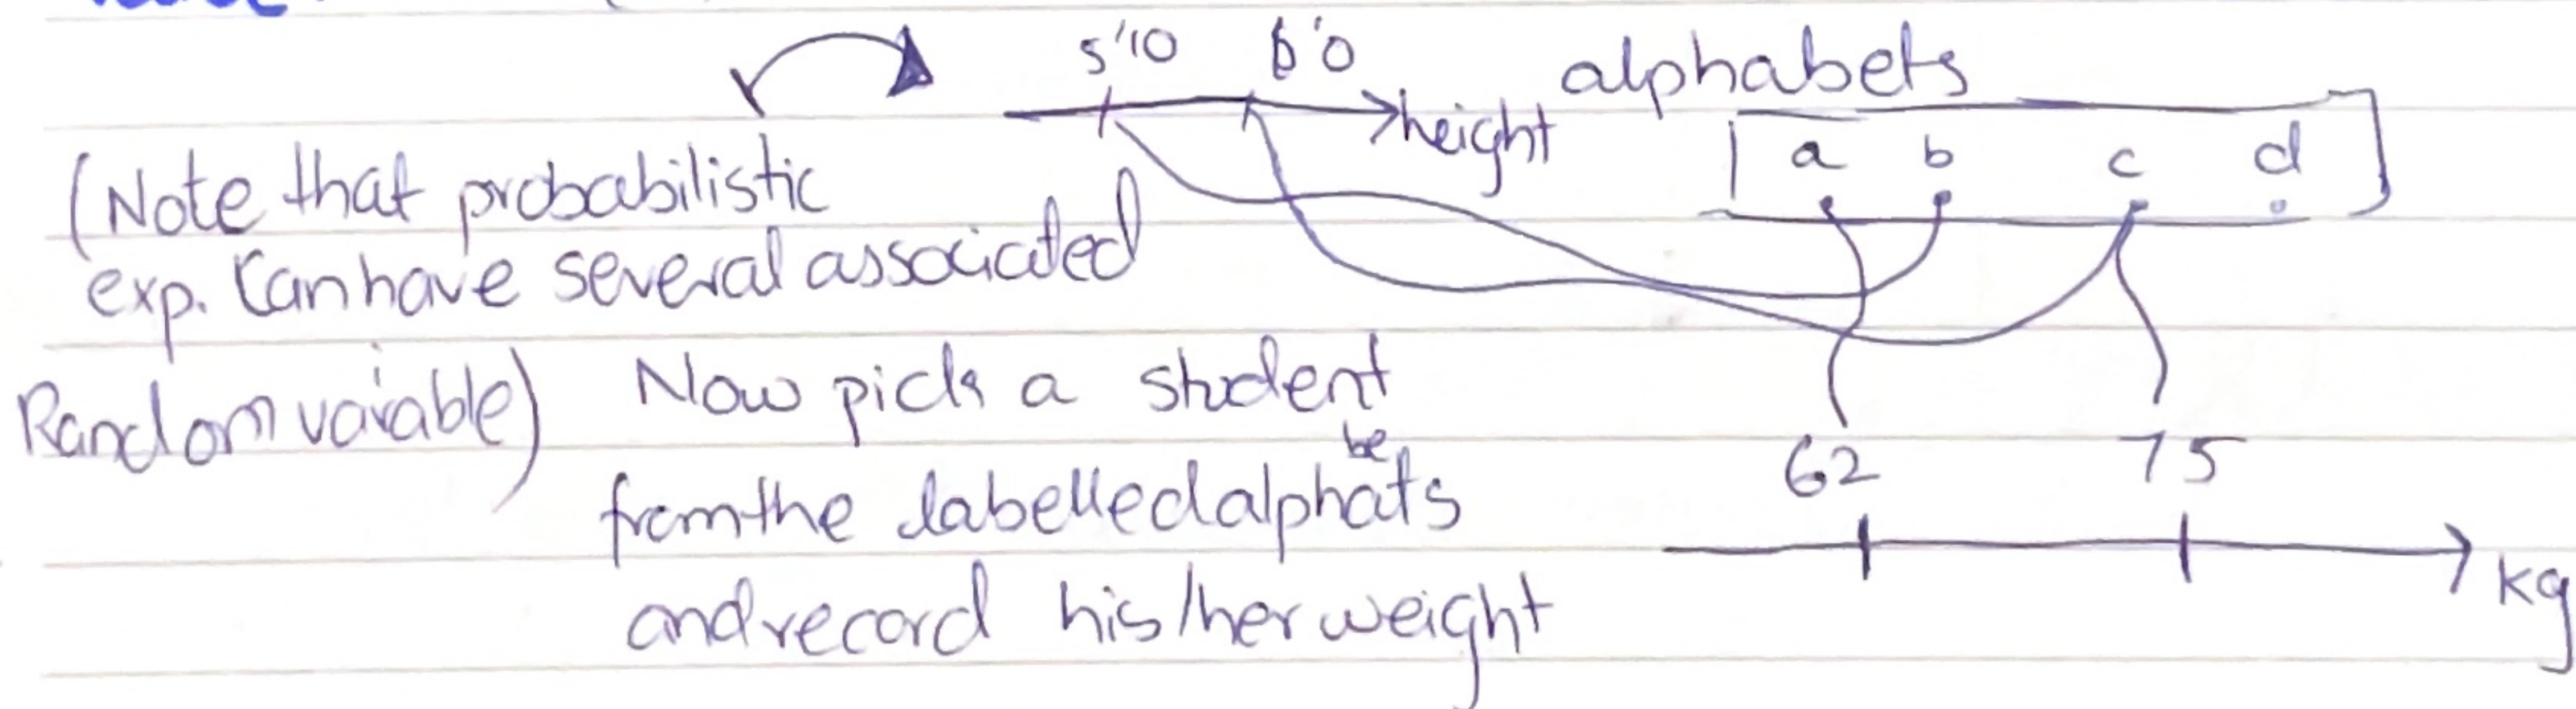 5'10 6'0 alphabets
height
a b c d
(Note that probabilistic
exp. Can have several associated
Random vaiable) Now pick a student
from the labelled alphabets
and record his/her weight
62 75
kg